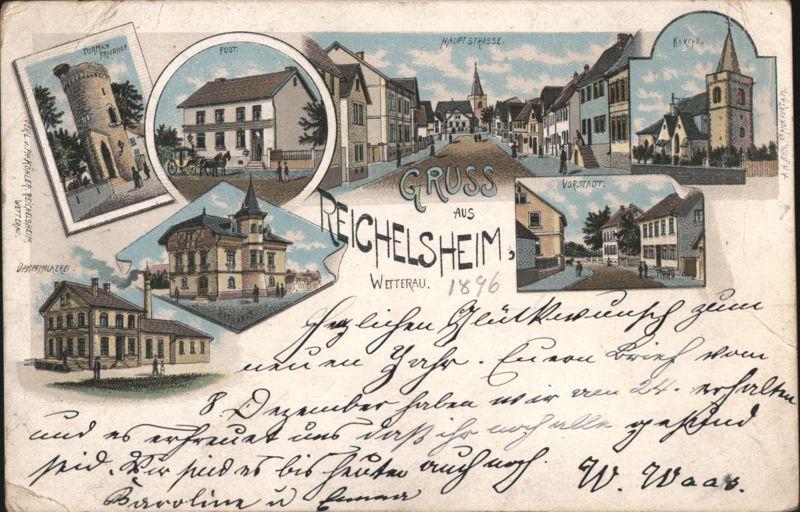 TURM AM FRIEDHOF
POST.
HAUPTSTRASSE.
KIRCHE.
VORSTADT.
DAMPFMOLKEREI.
GRUSS
AUS
REICHELSHEIM,
WETTERAU.
1896
Herzlichen Glückwunsch zum
neuen Jahr. Euern Brief vom
8 Dezember haben wir am 24. erhalten
und es erfreuet uns daß ihr noch alle gesund
seid. Wir sind es bis heute auch noch. W. Waas.
Karoline u Emma